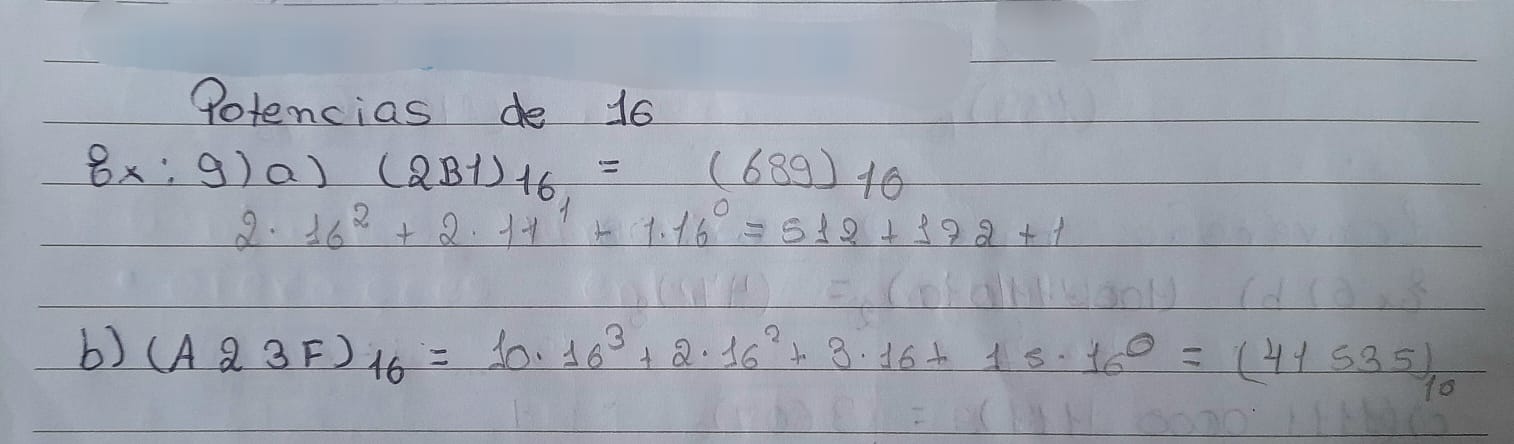 Potencias de 16
Ex: 9) a) (2B1)₁₆ = (689)₁₀
2 · 16² + 2 · 11¹ + 1 · 16⁰ = 512 + 172 + 1
b) (A 2 3 F)₁₆ = 10 · 16³ + 2 · 16² + 3 · 16 + 15 · 16⁰ = (41 535)₁₀